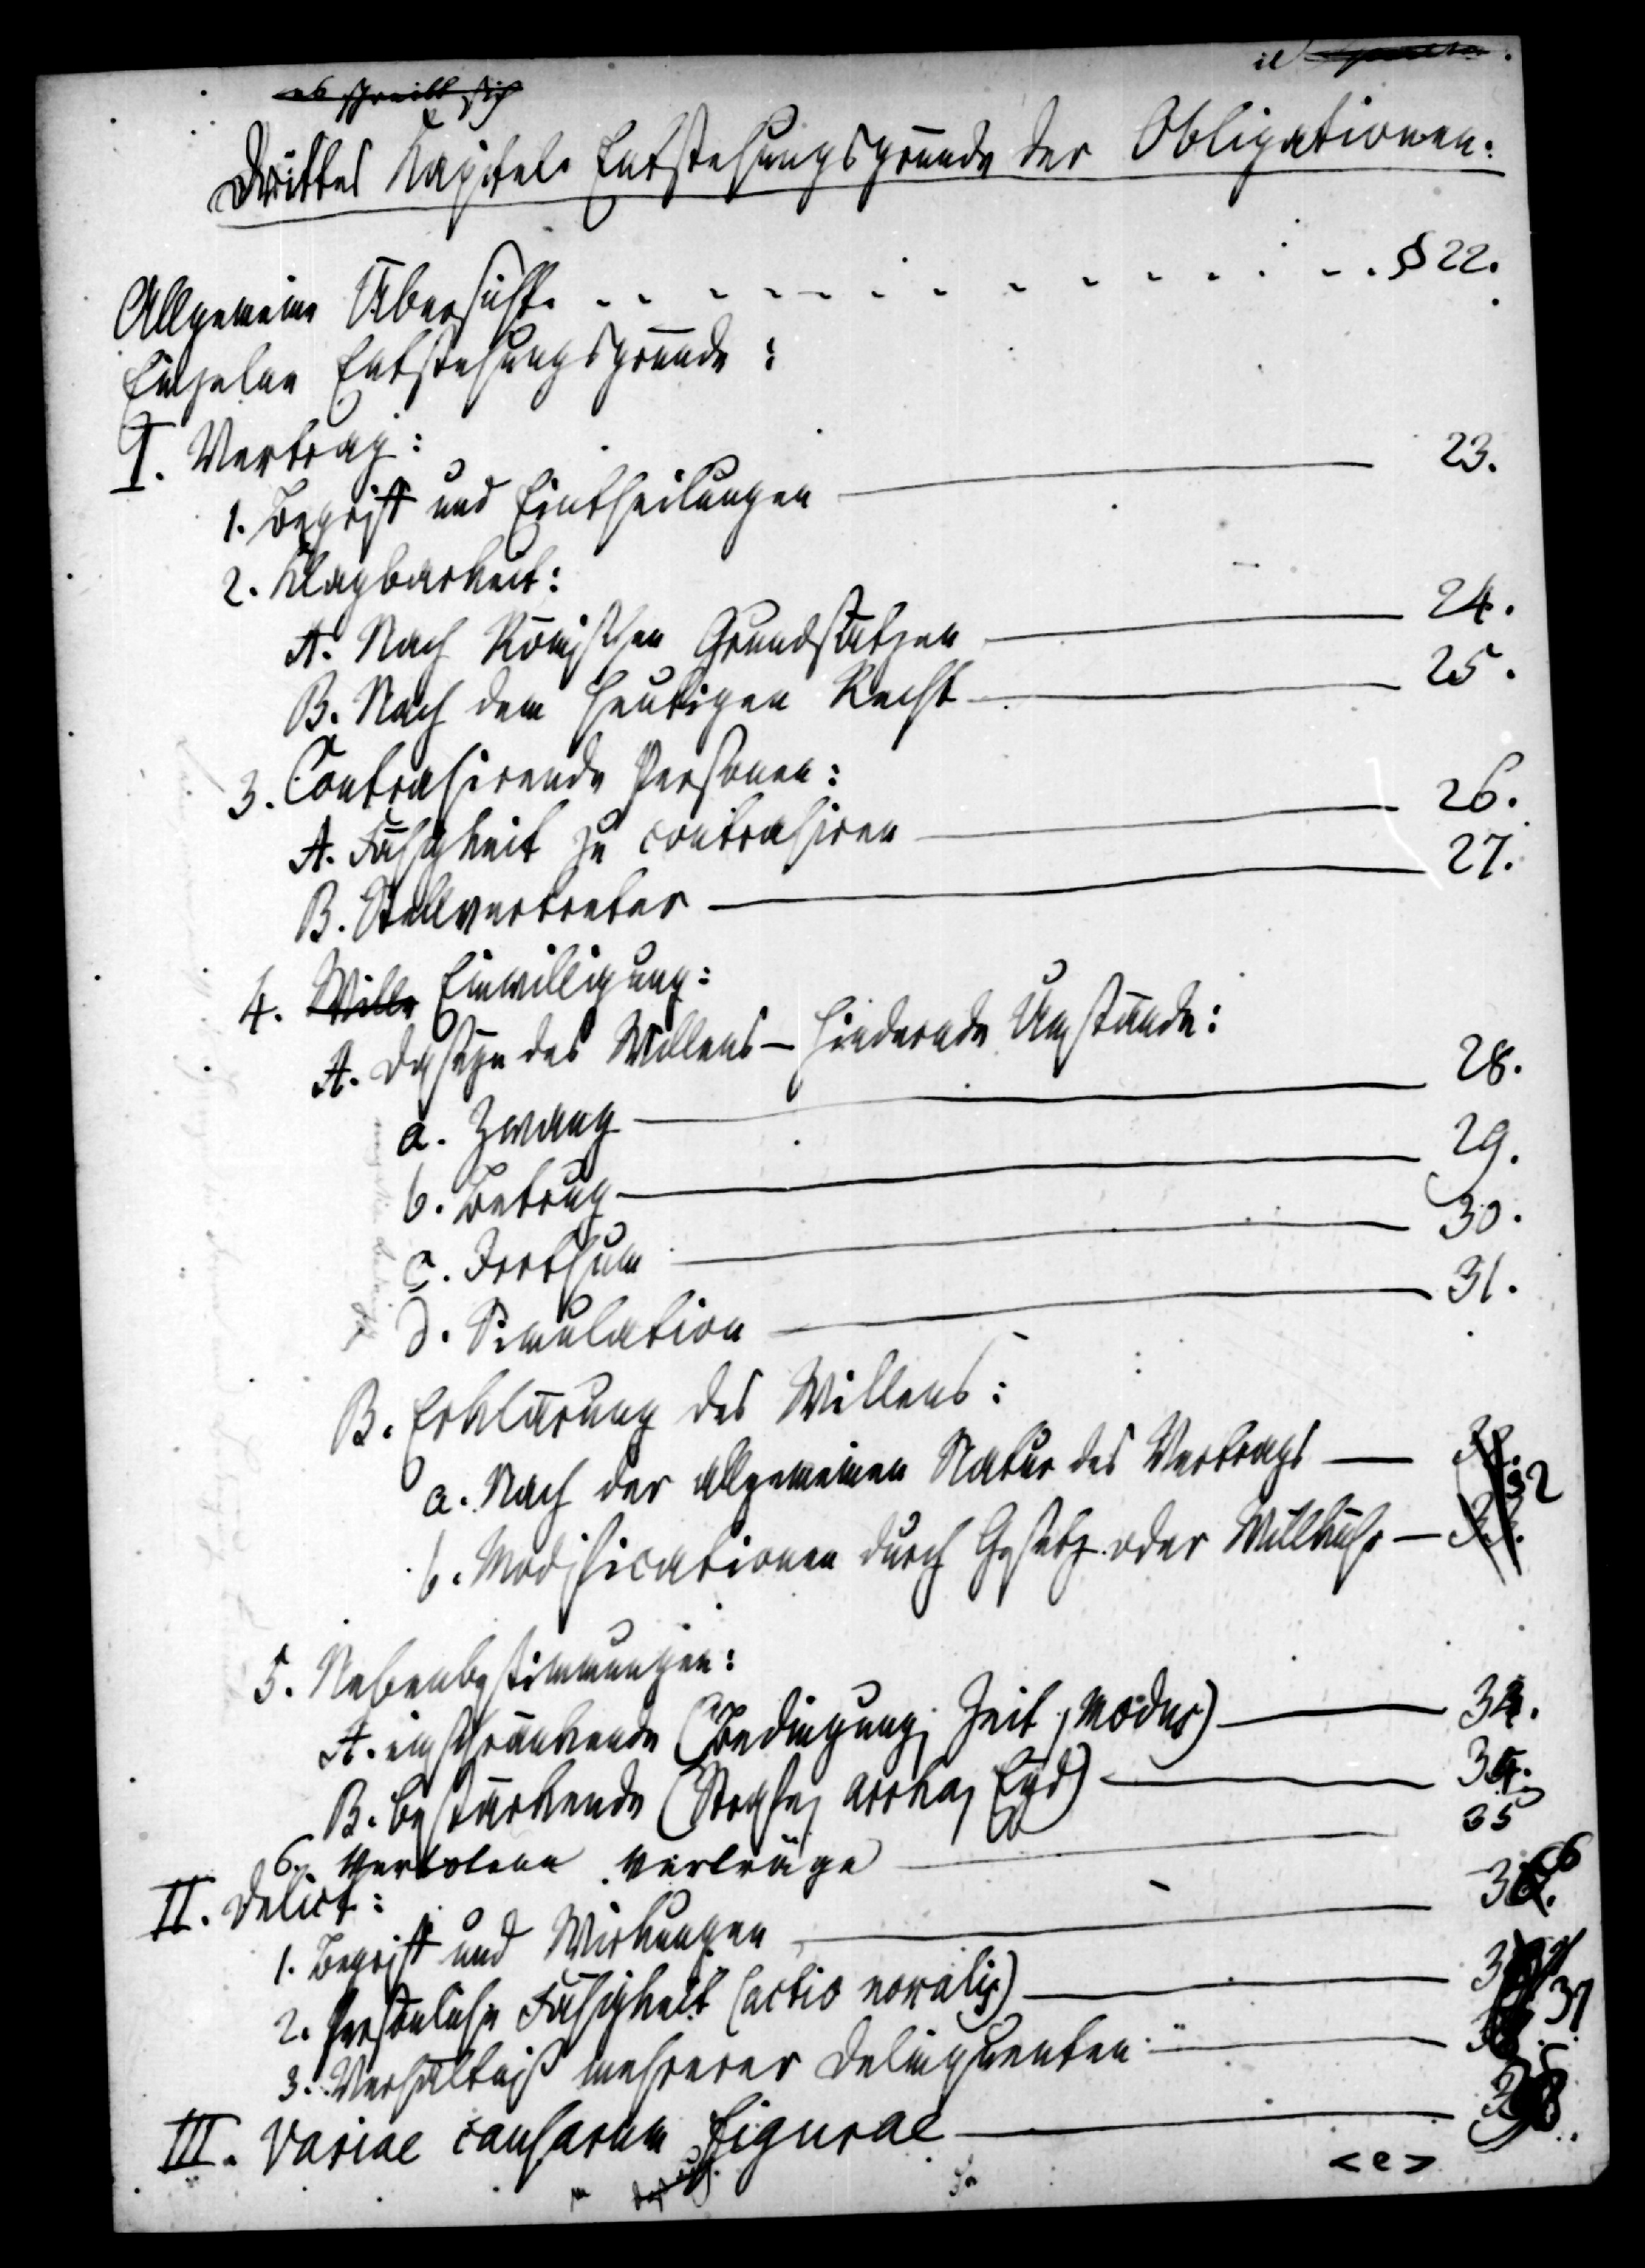 Drittes Kapitel. Entstehungsgründe der Obligationen.
Allgemeine Übersicht. - - - - - - - - - - - - § 22.
Einzelne Entstehungsgründe:
I. Vertrag:
1. Begriff und Eintheilungen — 23.
2. Klagbarkeit:
A. Nach Römischen Grundsätzen — 24.
B. Nach dem heutigen Recht — 25.
3. Contrahirende Personen:
A. Fähigkeit zu contrahiren — 26.
B. Stellvertreter — 27.
4. Wille Einwilligung:
A. Daseyn des Willens — hindernde Umstände:
a. Zwang — 28.
b. Betrug — 29.
c. Irrthum — 30.
d. Simulation — 31.
B. Erklärung des Willens:
a. Nach der allgemeinen Natur des Vertrags —
32
b. Modificationen durch Gesetz oder Willkühr — 33.
5. Nebenbestimmungen:
A. einschränkende (Bedingung, Zeit, Modus) — 33.
B. bestärkende (Strafe, arrha, Eyd) — 34.
6. Verbotene Verträge — 35
II. Delict:
1. Begriff und Wirkungen — 36.
2. Persönliche Fähigkeit (actio noxalis) —
37
3. Verhältniß mehrerer Delinquenten —
III. Variae causarum figurae — 38.
<e>